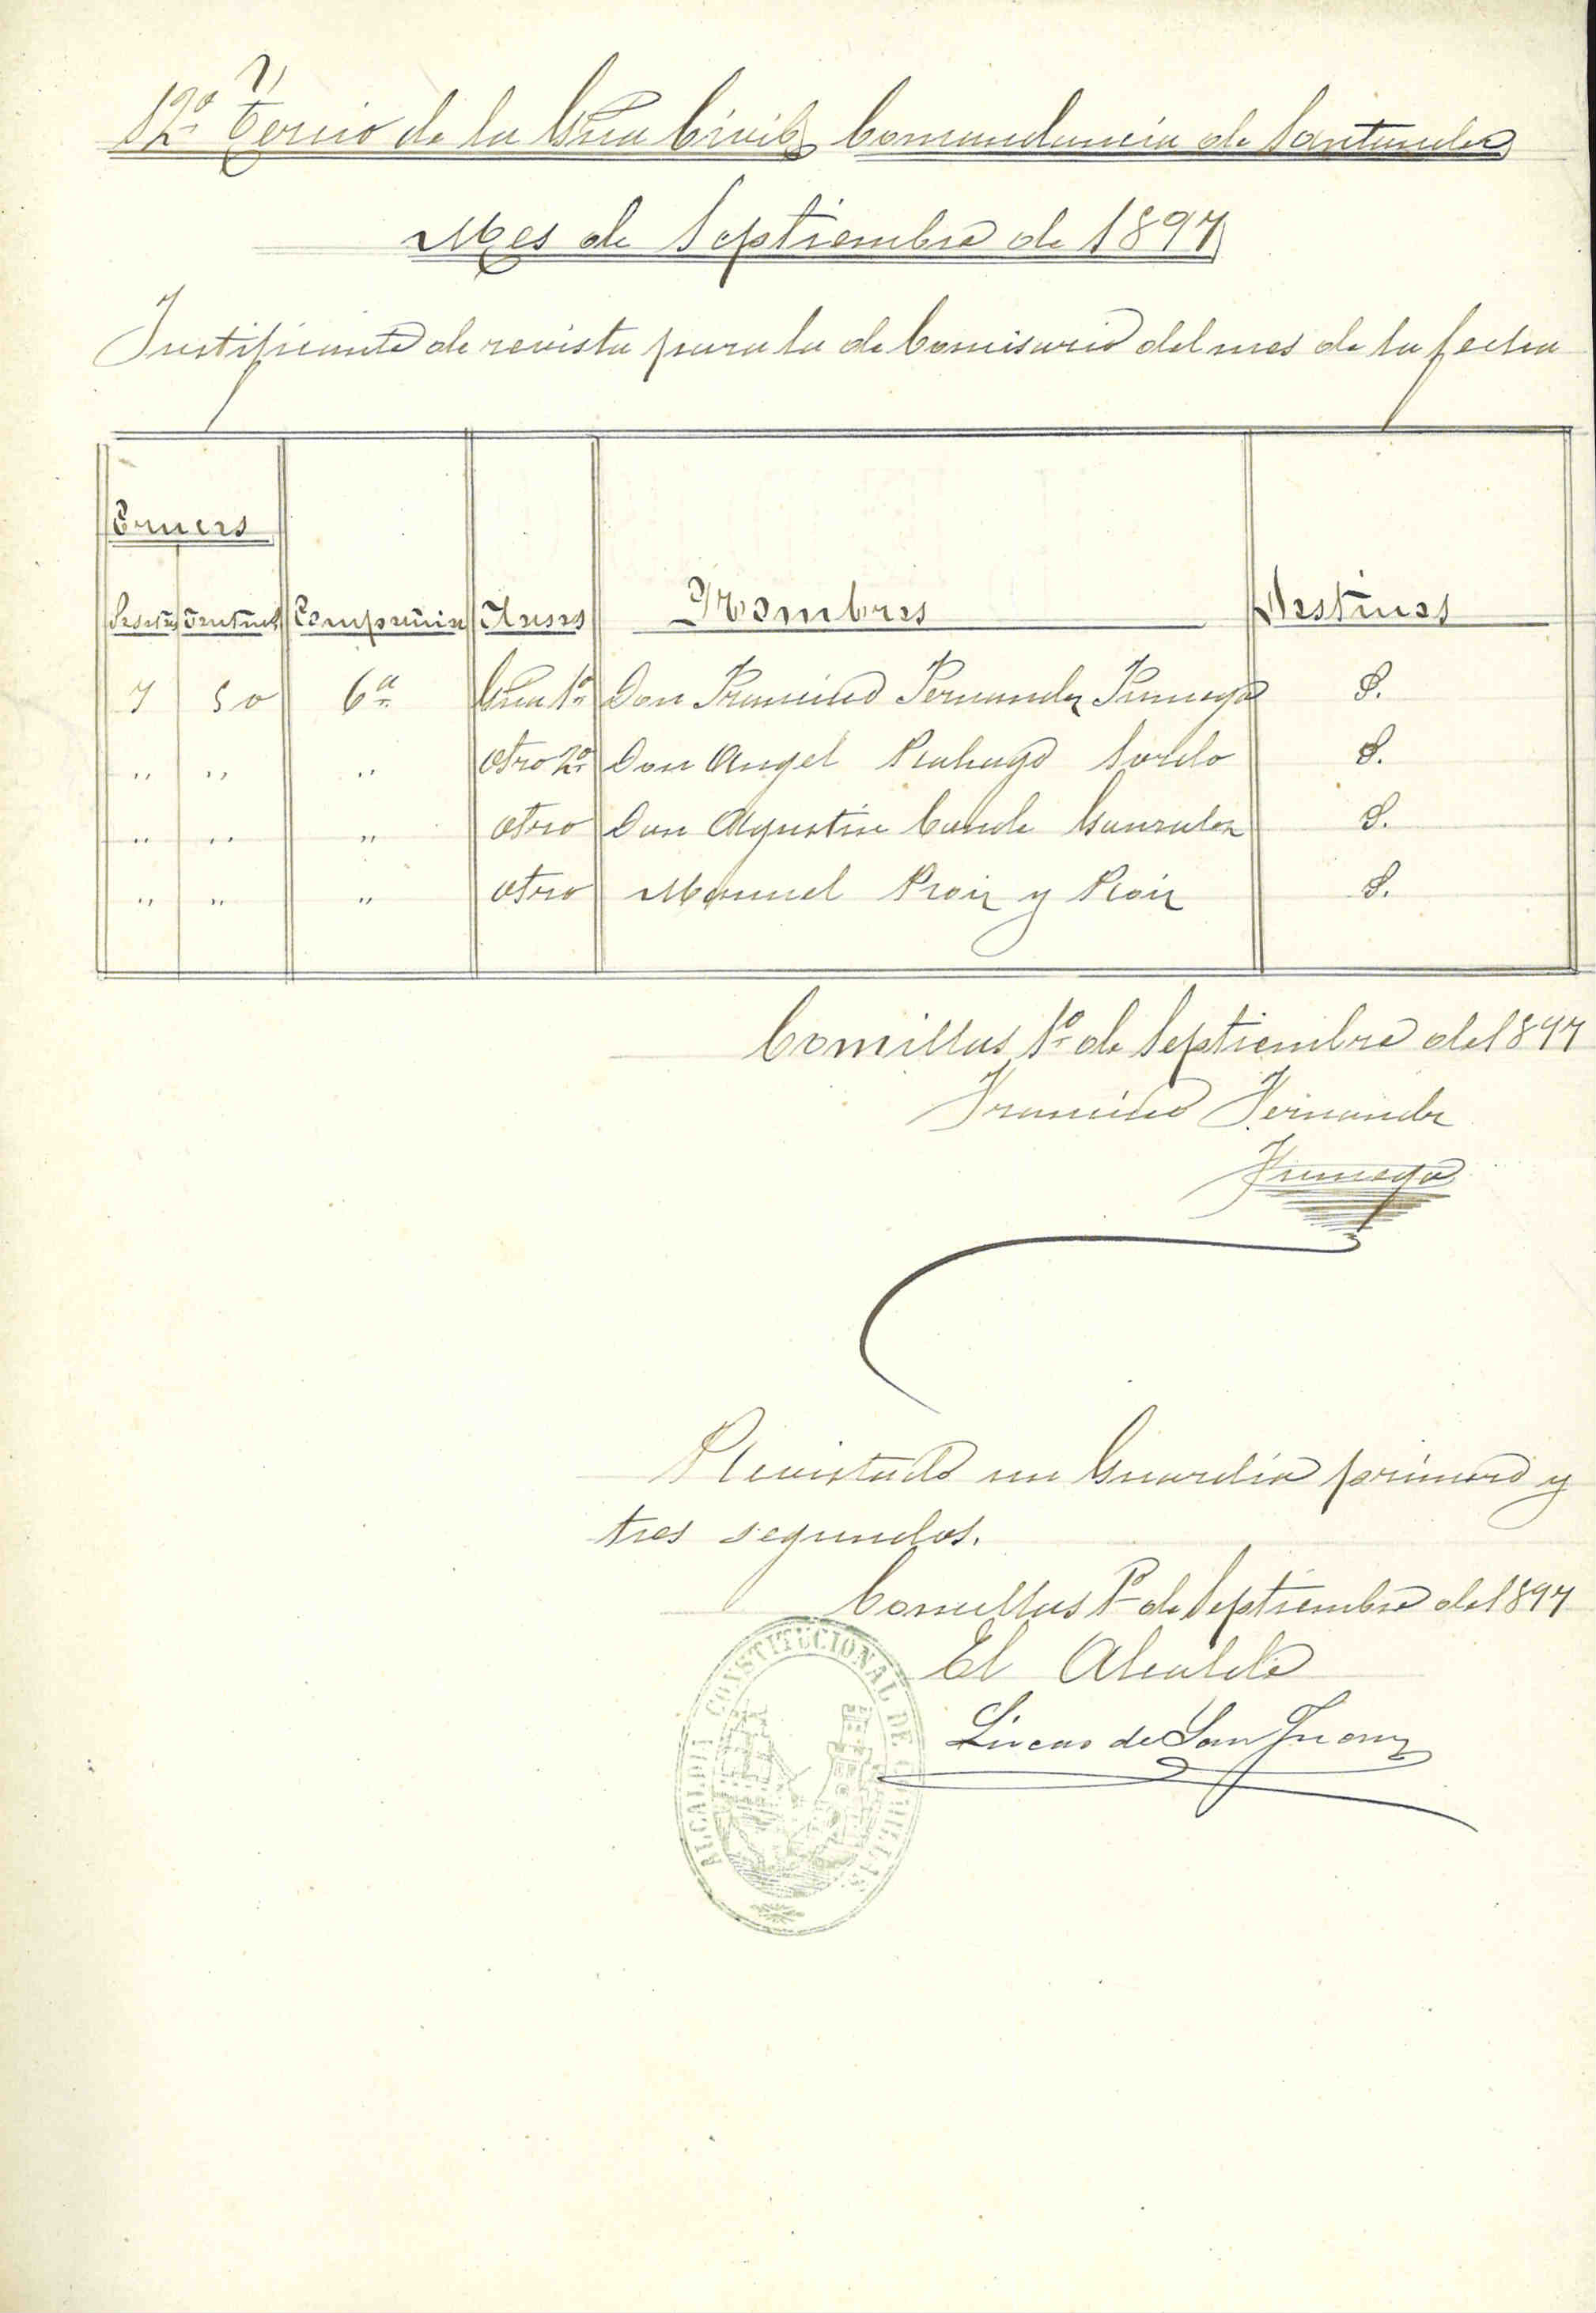 12º Tercio de la Gua Civil Comandancia de Santander
Mes de Septiembre de 1897
Justificante de revista para la de Comisario del mes de la fecha
Cruces
Pesetas Centimos Compañia Clases Nombres Destinos
7 50 6ª Gua 1º Don Francisco Fernandez Fumega P.
" " " Otro 2º Don Angel Rabago Sordo P.
" " " Otro Don Agustin Conde Gonzalez P.
" " " Otro Manuel Roiz y Roiz P.
Comillas 1º de Septiembre de 1897
Francisco Fernandez
Fumega
Revistado un Guardia primero y
tres segundos.
Comillas 1º de Septiembre de 1897
El Alcalde
Lucas de San Juan
ALCALDIA CONSTITUCIONAL DE COMILLAS